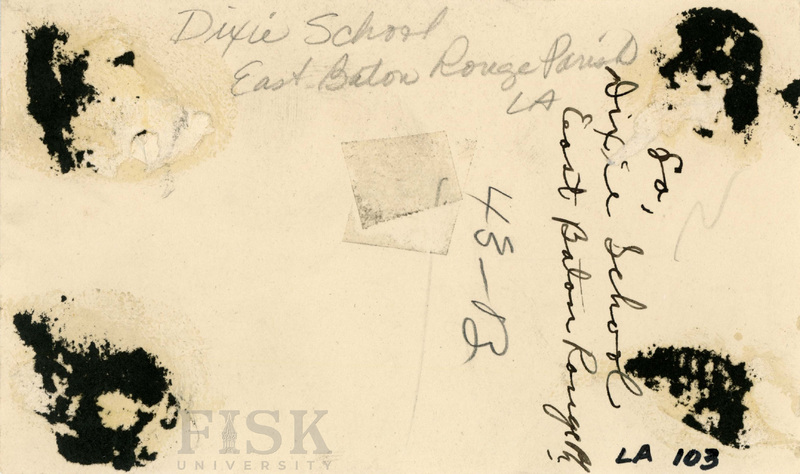 Dixie School
East Baton Rouge Parish
LA
La,
Dixie School
East Baton Rouge Ph
43-B
LA 103
FISK
UNIVERSITY